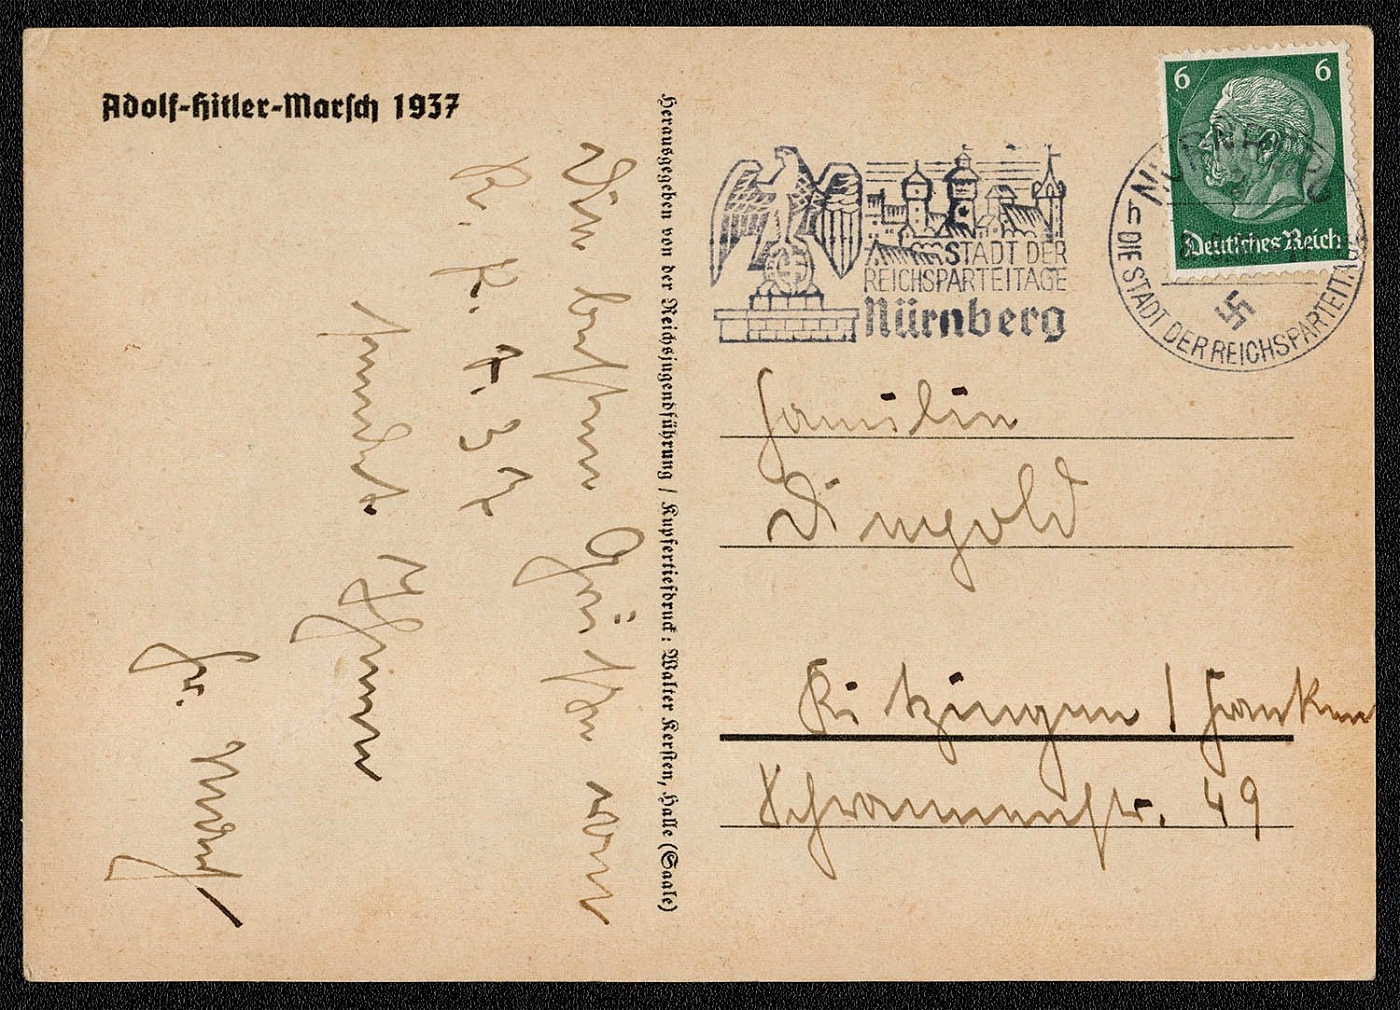 Adolf-Hitler-Marsch 1937
Die besten Grüße vom
R. P. T. 37
sendet Ihnen
Fr.
Herausgegeben von der Reichsjugendführung / Kupfertiefdruck: Walter Kersten, Halle (Saale)
STADT DER
REICHSPARTEITAGE
Nürnberg
6 6
Deutsches Reich
NÜRNBERG
DIE STADT DER REICHSPARTEITAGE
Familie
Dingold
Kitzingen / Franken
Schrannenstr. 49